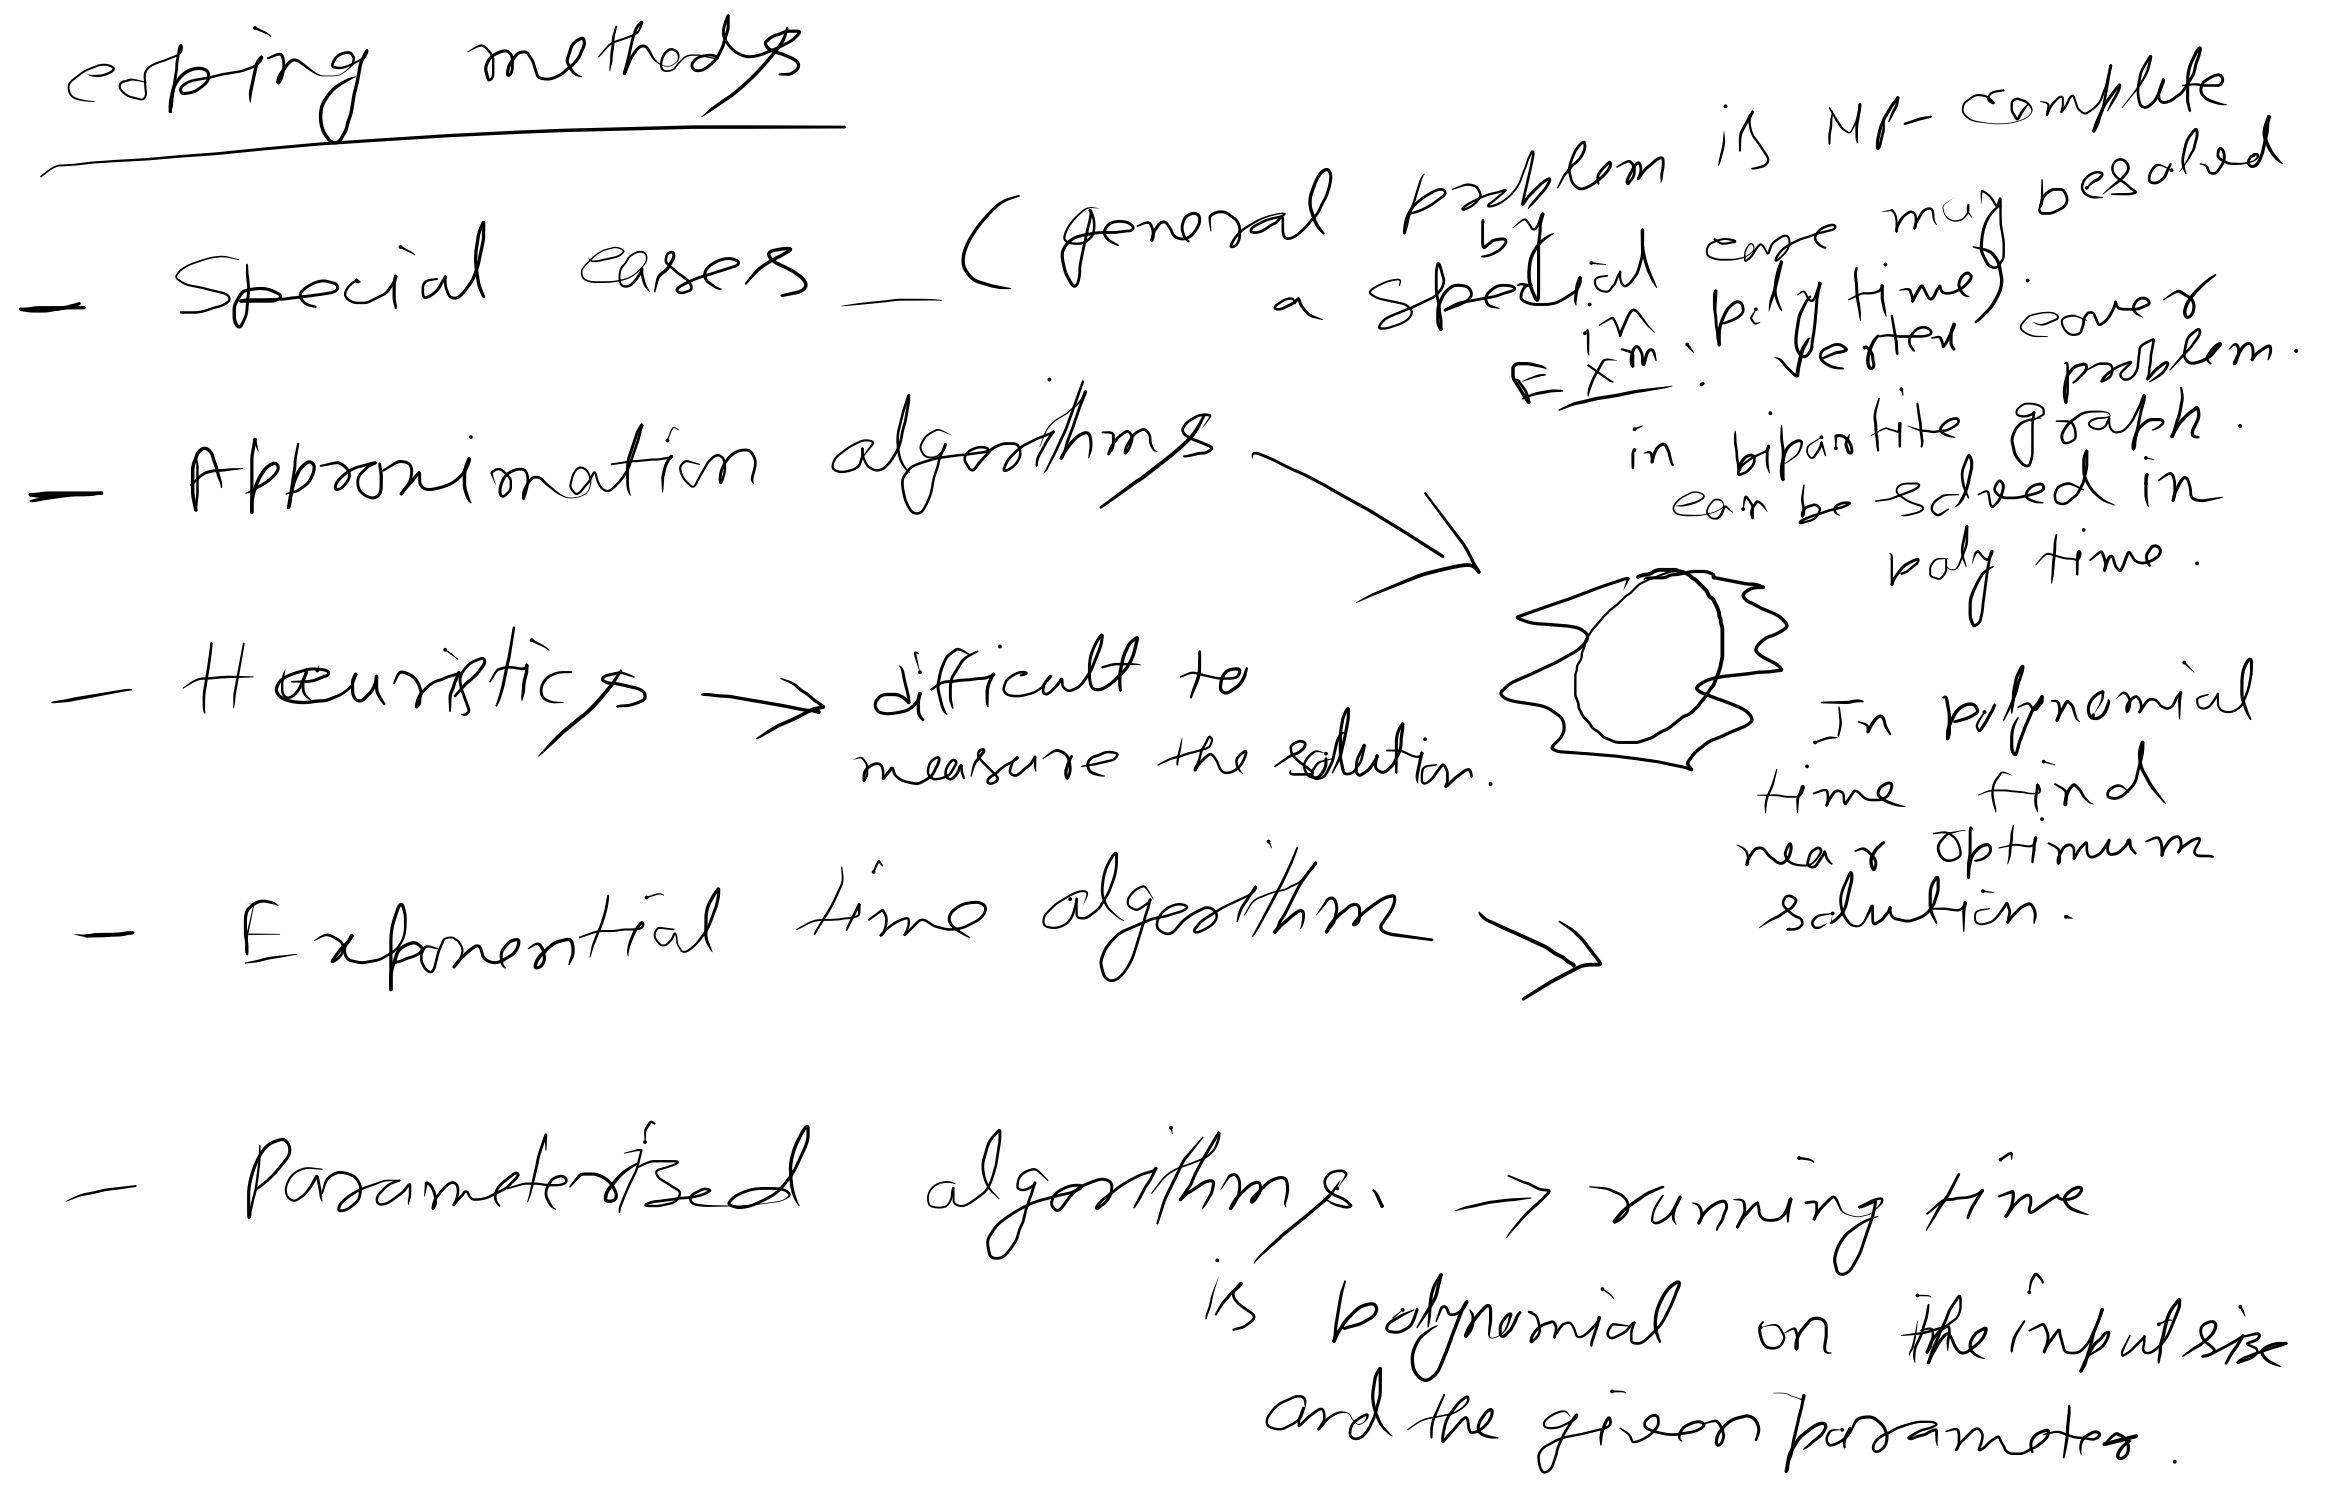 coping methods
- Special cases - (general problem is NP-complete
by a special case may be solved
in poly time).
Exm: Vertex cover
problem.
in bipartite graph.
can be solved in
poly time.
- Approximation algorithms →
In polynomial
time find
near optimum
solution.
- Heuristics → difficult to
measure the solution.
- Exponential time algorithm →
- Parameterised algorithms. → running time
is polynomial on the input size
and the given parameter.